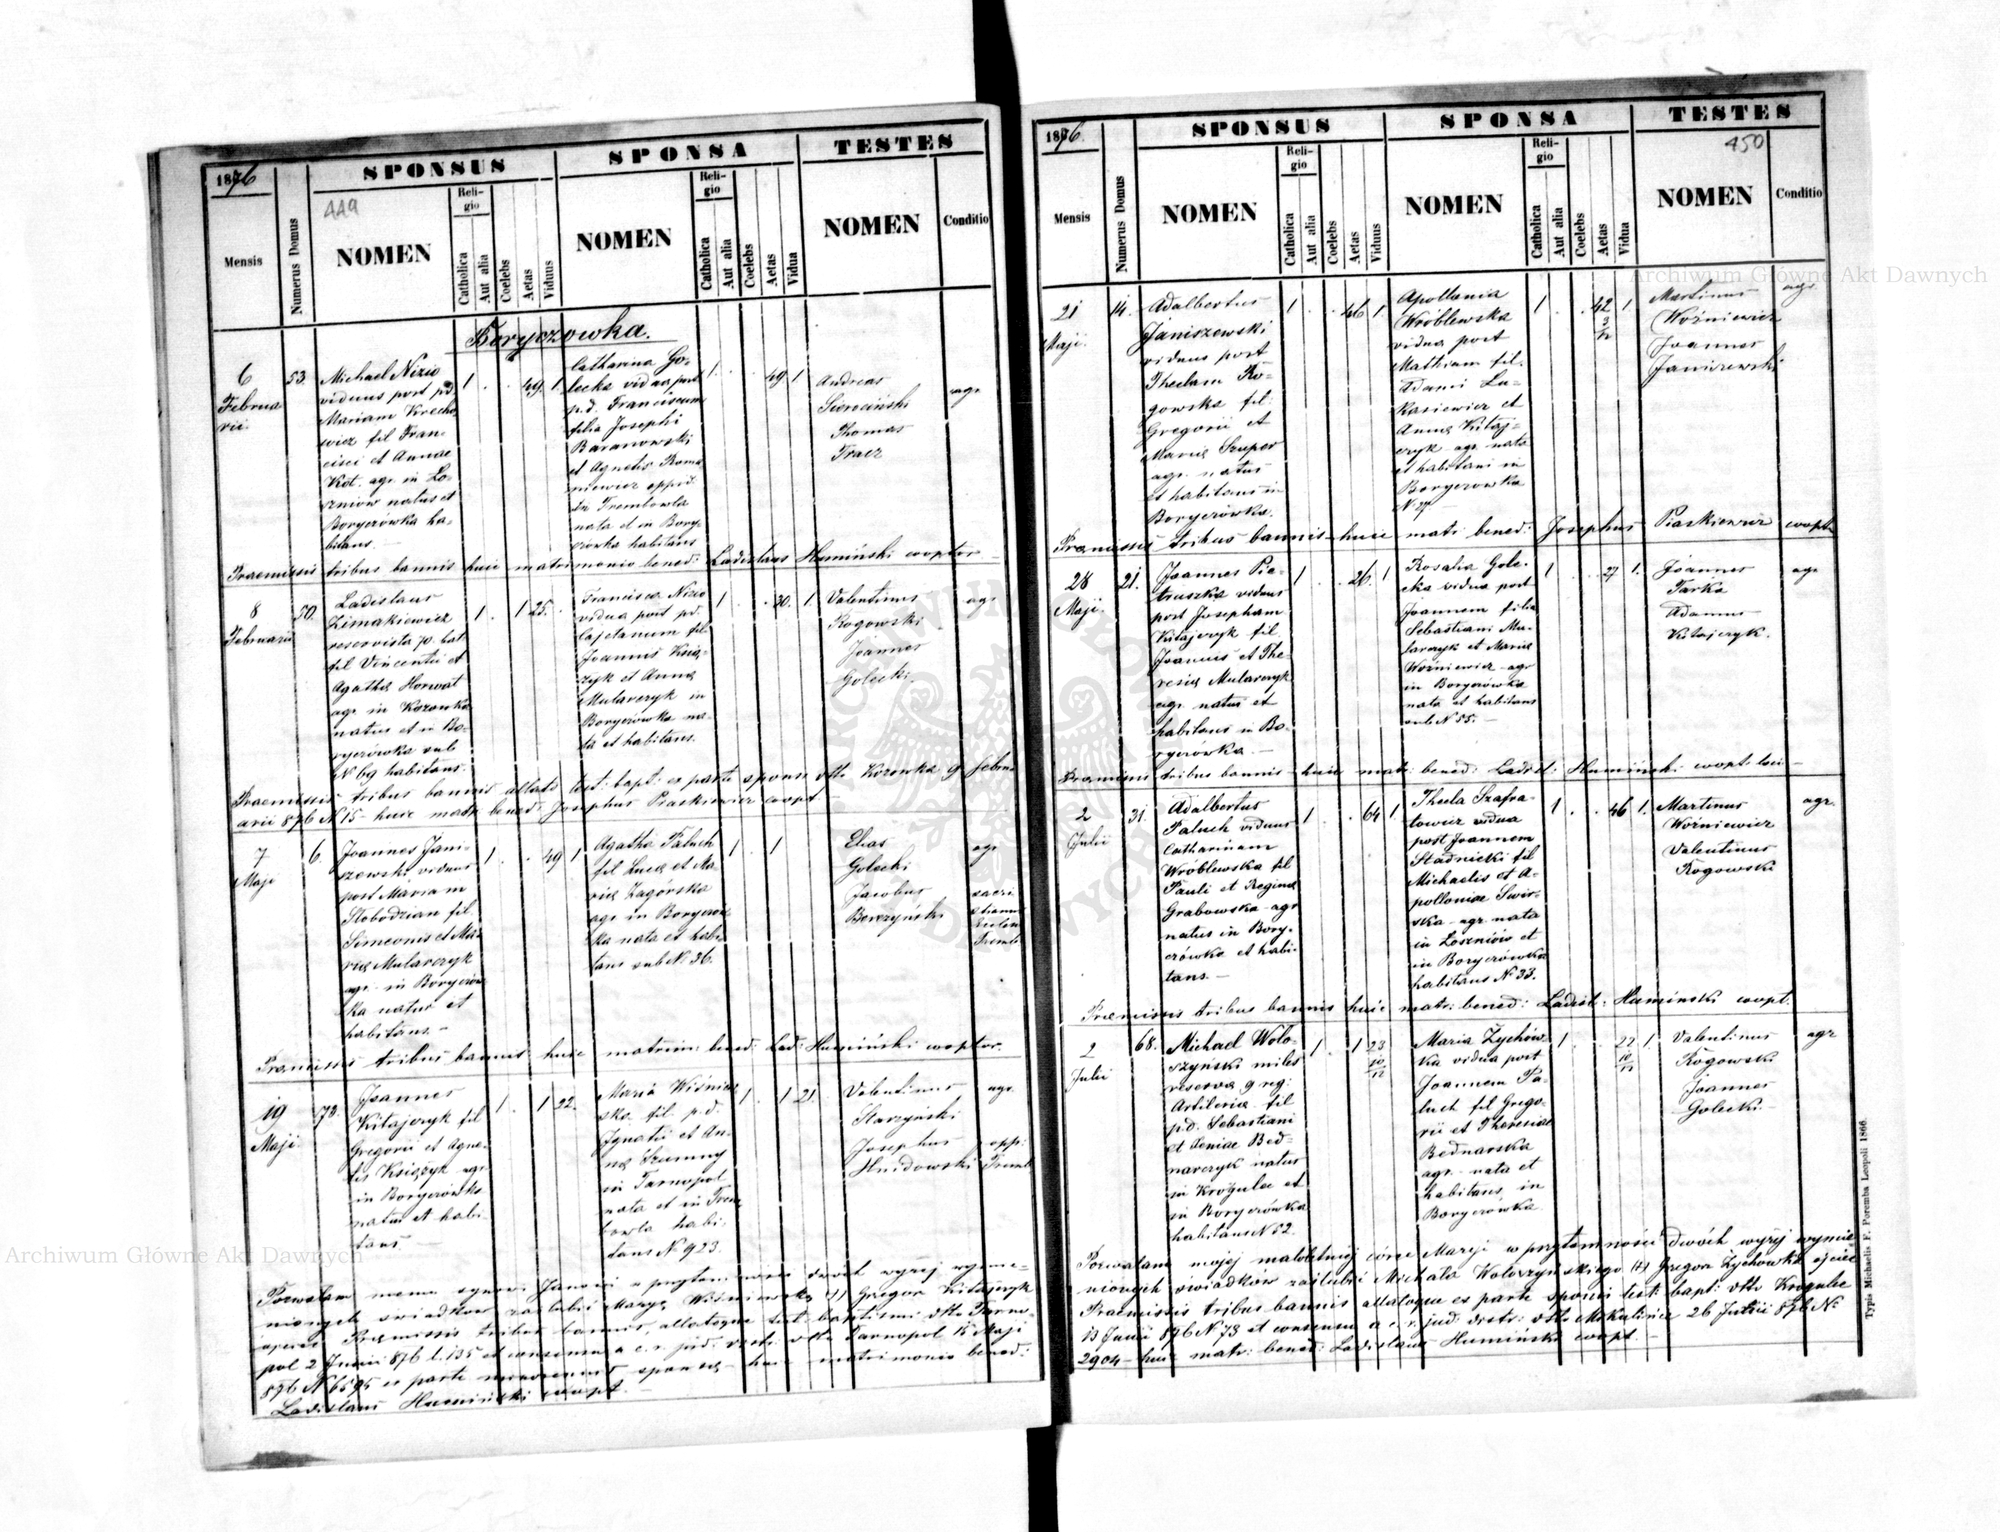 1876
SPONSUS
SPONSA
TESTES
Mensis
Numerus Domus
449
NOMEN
Religio
Catholica
Aut alia
Coelebs
Aetas
Viduus
NOMEN
Religio
Catholica
Aut alia
Coelebs
Aetas
Vidua
NOMEN
Conditio
Boryczowka.
6
Februa
rii
53.
Michael Nizio
viduus post pd.
Mariam Krecho
wicz fil Fran-
cisci et Annae
Kot. agr. in Ło-
szniów natus et
Boryczówka ha-
bitans.
1 . . 49. 1.
Catharina Go-
lecka vidua post
p.d. Franciscum
filia Josephi
Baranowski
et Agnetis Roma
niewicz oppid.
in Trembowla
nata et in Bory-
czówka habitans
1. . . 49 1
Andreas
Sienciński
Thomas
Tracz
agr.
Praemissis tribus bannis huic matrimonio bened: Ladislaus Humiński cooptor
8
Februarii
50.
Ladislaus
Zimakiewicz
reservista 70. bat
fil Vincentii et
Agathę Horwat
agr. in Kozowka
natus et in Bo-
ryczówka sub
N 69 habitans.
1 . 1 25.
Francisca Nizio
vidua post pd.
Cajetanum fil
Joannis Księ-
żyk et Annę
Mularczyk in
Boryczówka na-
ta et habitans.
1 . . 30. 1.
Valentinus
Rogowski
Joannes
Golecki.
agr.
Praemissis tribus bannis allato test: bapt: ex parte sponsi dtto Kozowka 9 Febru
arii 876 N 15 - huic matr bened: Josephus Piaskiewicz coopt
7
Maji
6.
Joannes Jani-
szewski viduus
post Mariam
Słobodzian fil.
Simeonis et Ma-
rię Mularczyk
agr. in Boryczów
ka natus et
habitans. -
1 . . 49 1
Agatha Paluch
fil Lucę et Ma-
rię Zagórska
agr in Boryczów
ka nata et habi-
tans sub N 36.
1 . 1
Elias
Golecki
Jacobus
Berczyński
agr
sacri
Praemissis tribus bannis huic matrim: bened: Lad: Humiński cooptor.
19
Maji
73.
Joannes
Kitajczyk fil
Gregorii et Agne-
tis Księżyk agr
in Boryczówka
natus et habi-
tans.
1. . 1 22.
Maria Wiśniew
ska fil. p.d.
Ignatii et An-
nę Szumny
in Tarnopol
nata et in Trem
bowla habi-
tans N 923.
1. . 1 21.
Valentinus
Starzyński
Josephus
Hnidowski
agr.
opp:
Tremb
Pozwalam memu synowi Janowi w przytomności dwóch wyżej wymie-
nionych świadków zaślubić Maryę Wiśniewską +) Gregor Kitajczyk
ojciec Praemissis tribus bannis, allatoque test baptismi dtto Tarno
pol 2 Junii 876 l. 135 et consensu a c. r. jud. distr. dtto Tarnopol 15 Maji
876 N 6595 ex parte minorennis sponsę - huic matrimonio bened:
Ladislaus Humiński coopt.
1876.
SPONSUS
SPONSA
TESTES
450
Mensis
Numerus Domus
NOMEN
Religio
Catholica
Aut alia
Coelebs
Aetas
Viduus
NOMEN
Religio
Catholica
Aut alia
Coelebs
Aetas
Vidua
NOMEN
Conditio
21
Maji.
14.
Adalbertus
Janiszewski
viduus post
Theclam Ro-
gowska fil.
Gregorii et
Marię Szuper
agr. natus
et habitans in
Boryczówka.
1 . . 46 1
Apollonia
Wróblewska
vidua post
Mathiam fil.
Adami Łu-
kasiewicz et
Annę Kitaj-
czyk agr. nata
et habitans in
Boryczówka
1 . . 42 3/12 1
Martinus
Woźniewicz
Joannes
Janiszewski
agr.
Praemissis tribus bannis huic matr: bened: Josephus Piaskiewicz coopt
28
Maji.
21.
Joannes Pie-
truszka viduus
post Josepham
Kitajczyk fil.
Joannis et The-
resię Mularczyk
agr. natus et
habitans in Bo-
ryczówka. -
1 . . 26. 1
Rosalia Gole-
cka vidua post
Joannem filia
Sebastiani Mu-
larczyk et Marię
Woźniewicz agr
in Boryczówka
nata et habitans
sub N 55. -
1 . . 27 1.
Joannes
Tarka
Adamus
Kitajczyk.
agr
Praemissis tribus bannis huic matr: bened: Ladisl: Humiński coopt loci -
2
Julii
31.
Adalbertus
Paluch viduus
Catharinam
Wróblewska fil
Pauli et Reginę
Grabowska agr
natus in Bory-
czówka et habi-
tans. -
1 . . 64 1
Thecla Szafra-
towicz vidua
post Joannem
Stadnicki fil
Michaelis et A-
polloniae Swir-
ska agr. nata
in Łoszniów et
in Boryczówka
habitans N 33.
1 . . 46 1.
Martinus
Woźniewicz
Valentinus
Rogowski
agr.
Praemissis tribus bannis huic matr: bened: Ladisl: Humiński coopt.
2
Julii
68.
Michael Woło-
szyński miles
reserva 9 reg:
Artilerię fil
p.d. Sebastiani
et Xeniae Bed-
narczyk natus
in Krogulec et
in Boryczówka
habitans N 52.
1 . 1 23 10/12
Maria Zychów-
ka vidua post
Joannem Pa-
luch fil Grego-
rii et Theresiae
Bednarska
agr. nata et
habitans in
Boryczówka
1 . . 22 10/12 1.
Valentinus
Rogowski
Joannes
Golecki -
agr
Pozwalam mojej małoletniej córce Maryi w przytomności dwóch wyżej wymie-
nionych świadków zaślubić Michała Wołoszyńskiego +) Gregor Zychowka ojciec
Praemissis tribus bannis allatoque ex parte sponsi test: bapt: dtto Krogulec
13 Junii 876 N 73 et consensu a c. r. jud. distr: dtto Mikulińce 26 Junii 876 N
2904 - huic matr: bened: Ladislaus Humiński coopt. -
Typis Michaelis F. Poremba Leopoli 1866.
Archiwum Główne Akt Dawnych
Archiwum Główne Akt Dawnych